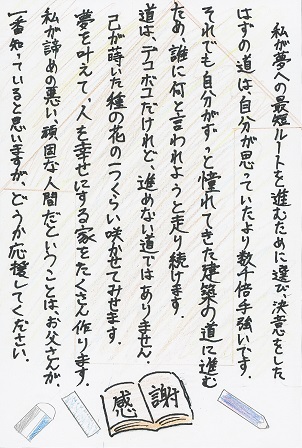 私が夢への最短ルートを進むために選び、決意をした
はずの道は、自分が思っていたより数千倍手強いです。
それでも自分がずっと憧れてきた建築の道に進む
ため、誰に何と言われようと走り続けます。
道は、デコボコだけれど、進めない道ではありません。
己が蒔いた種の花の一つくらい咲かせてみせます。
夢を叶えて、人を幸せにする家をたくさん作ります。
私が諦めの悪い、頑固な人間だということは、お父さんが、
一番知っていると思いますが、どうか応援してください。
感謝